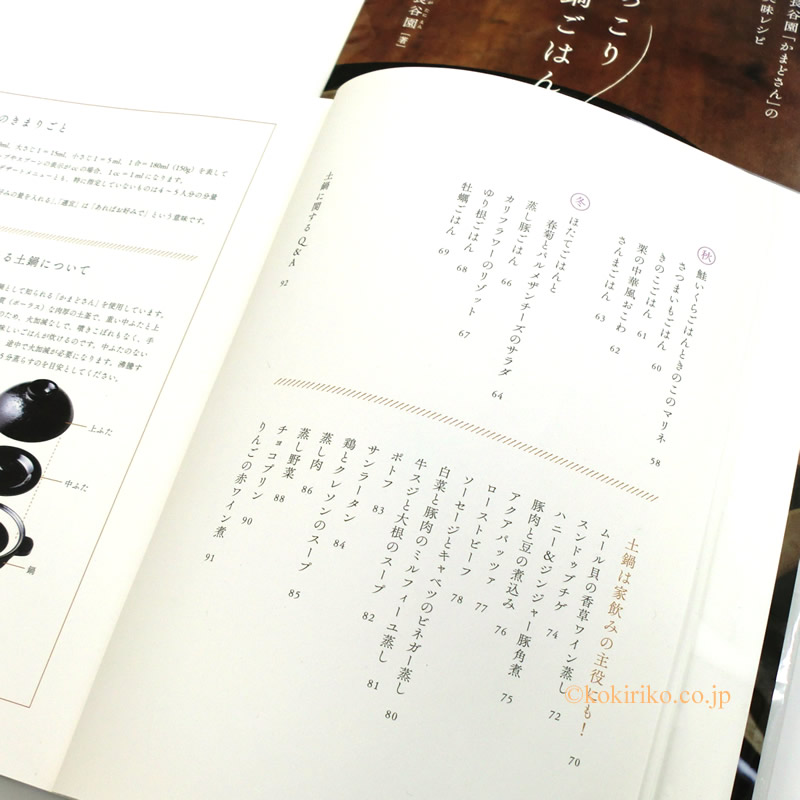 長谷園「かまどさん」の
美味レシピ
っこり
鍋ごはん
長谷園[著]
のきまりごと
0ml、大さじ1=15ml、小さじ1=5ml、1合=180ml(150g)を表して
プやスプーンの表示が cc の場合、1cc=1mlになります。
デザートメニューとも、特に指定していないものは4〜5人分の分量
好みの量を入れる」、「適宜」は「あればお好みで」という意味です。
る土鍋について
鍋として知られる「かまどさん」を使用しています。
質(ポーラス)な肉厚の土釜で、重い中ぶたと上
のため、火加減なしで、噴きこぼれもなく、手
味しいごはんが炊けるのです。中ぶたのない
、途中で火加減が必要になります。沸騰す
5分蒸らすのを目安としてください。
上ふた
中ふた
鍋
秋
鮭いくらごはんときのこのマリネ 58
さつまいもごはん 60
きのこごはん 61
栗の中華風おこわ 62
さんまごはん 63
冬
ほたてごはんと
春菊とパルメザンチーズのサラダ 64
蒸し豚ごはん 66
カリフラワーのリゾット 67
ゆり根ごはん 68
牡蠣ごはん 69
土鍋に関するQ&A 92
土鍋は家飲みの主役 も! 70
ムール貝の香草ワイン蒸し 72
スンドゥブチゲ 74
ハニー&ジンジャー豚角煮 75
豚肉と豆の煮込み 76
アクアパッツァ 77
ローストビーフ 78
ソーセージとキャベツのビネガー蒸し 80
白菜と豚肉のミルフィーユ蒸し 81
牛スジと大根のスープ 82
ポトフ 83
サンラータン 84
鶏とクレソンのスープ 85
蒸し肉 86
蒸し野菜 88
チョコプリン 90
りんごの赤ワイン煮 91
©kokiriko.co.jp